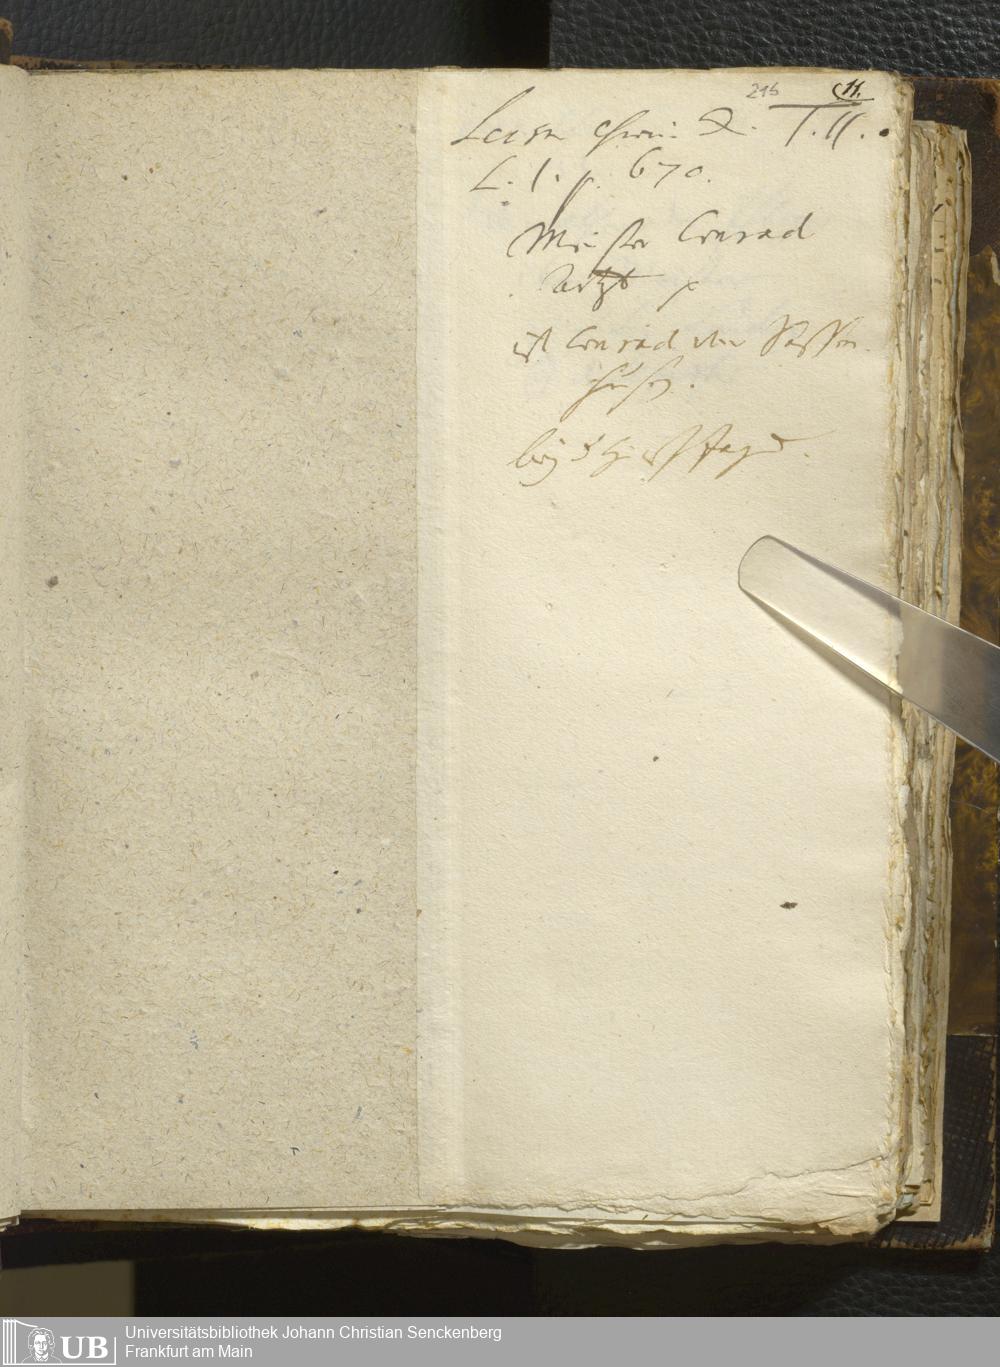 216 11.
Lersn Chron: 2. T. II.
L. 1. p. 670.
Meister Conrad
Artzt
ist Conrad von Sassen
husen.
Universitätsbibliothek Johann Christian Senckenberg
Frankfurt am Main
UB